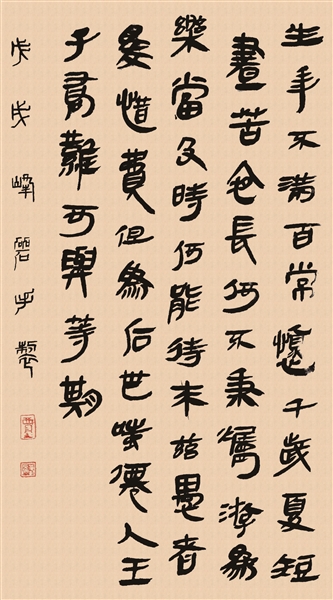 生年不滿百常懷千歲夏短
晝苦夜長何不秉燭游為
樂當及時何能待来兹愚者
愛惜費但為后世嗤僊人王
子喬難可與等期
戊戌